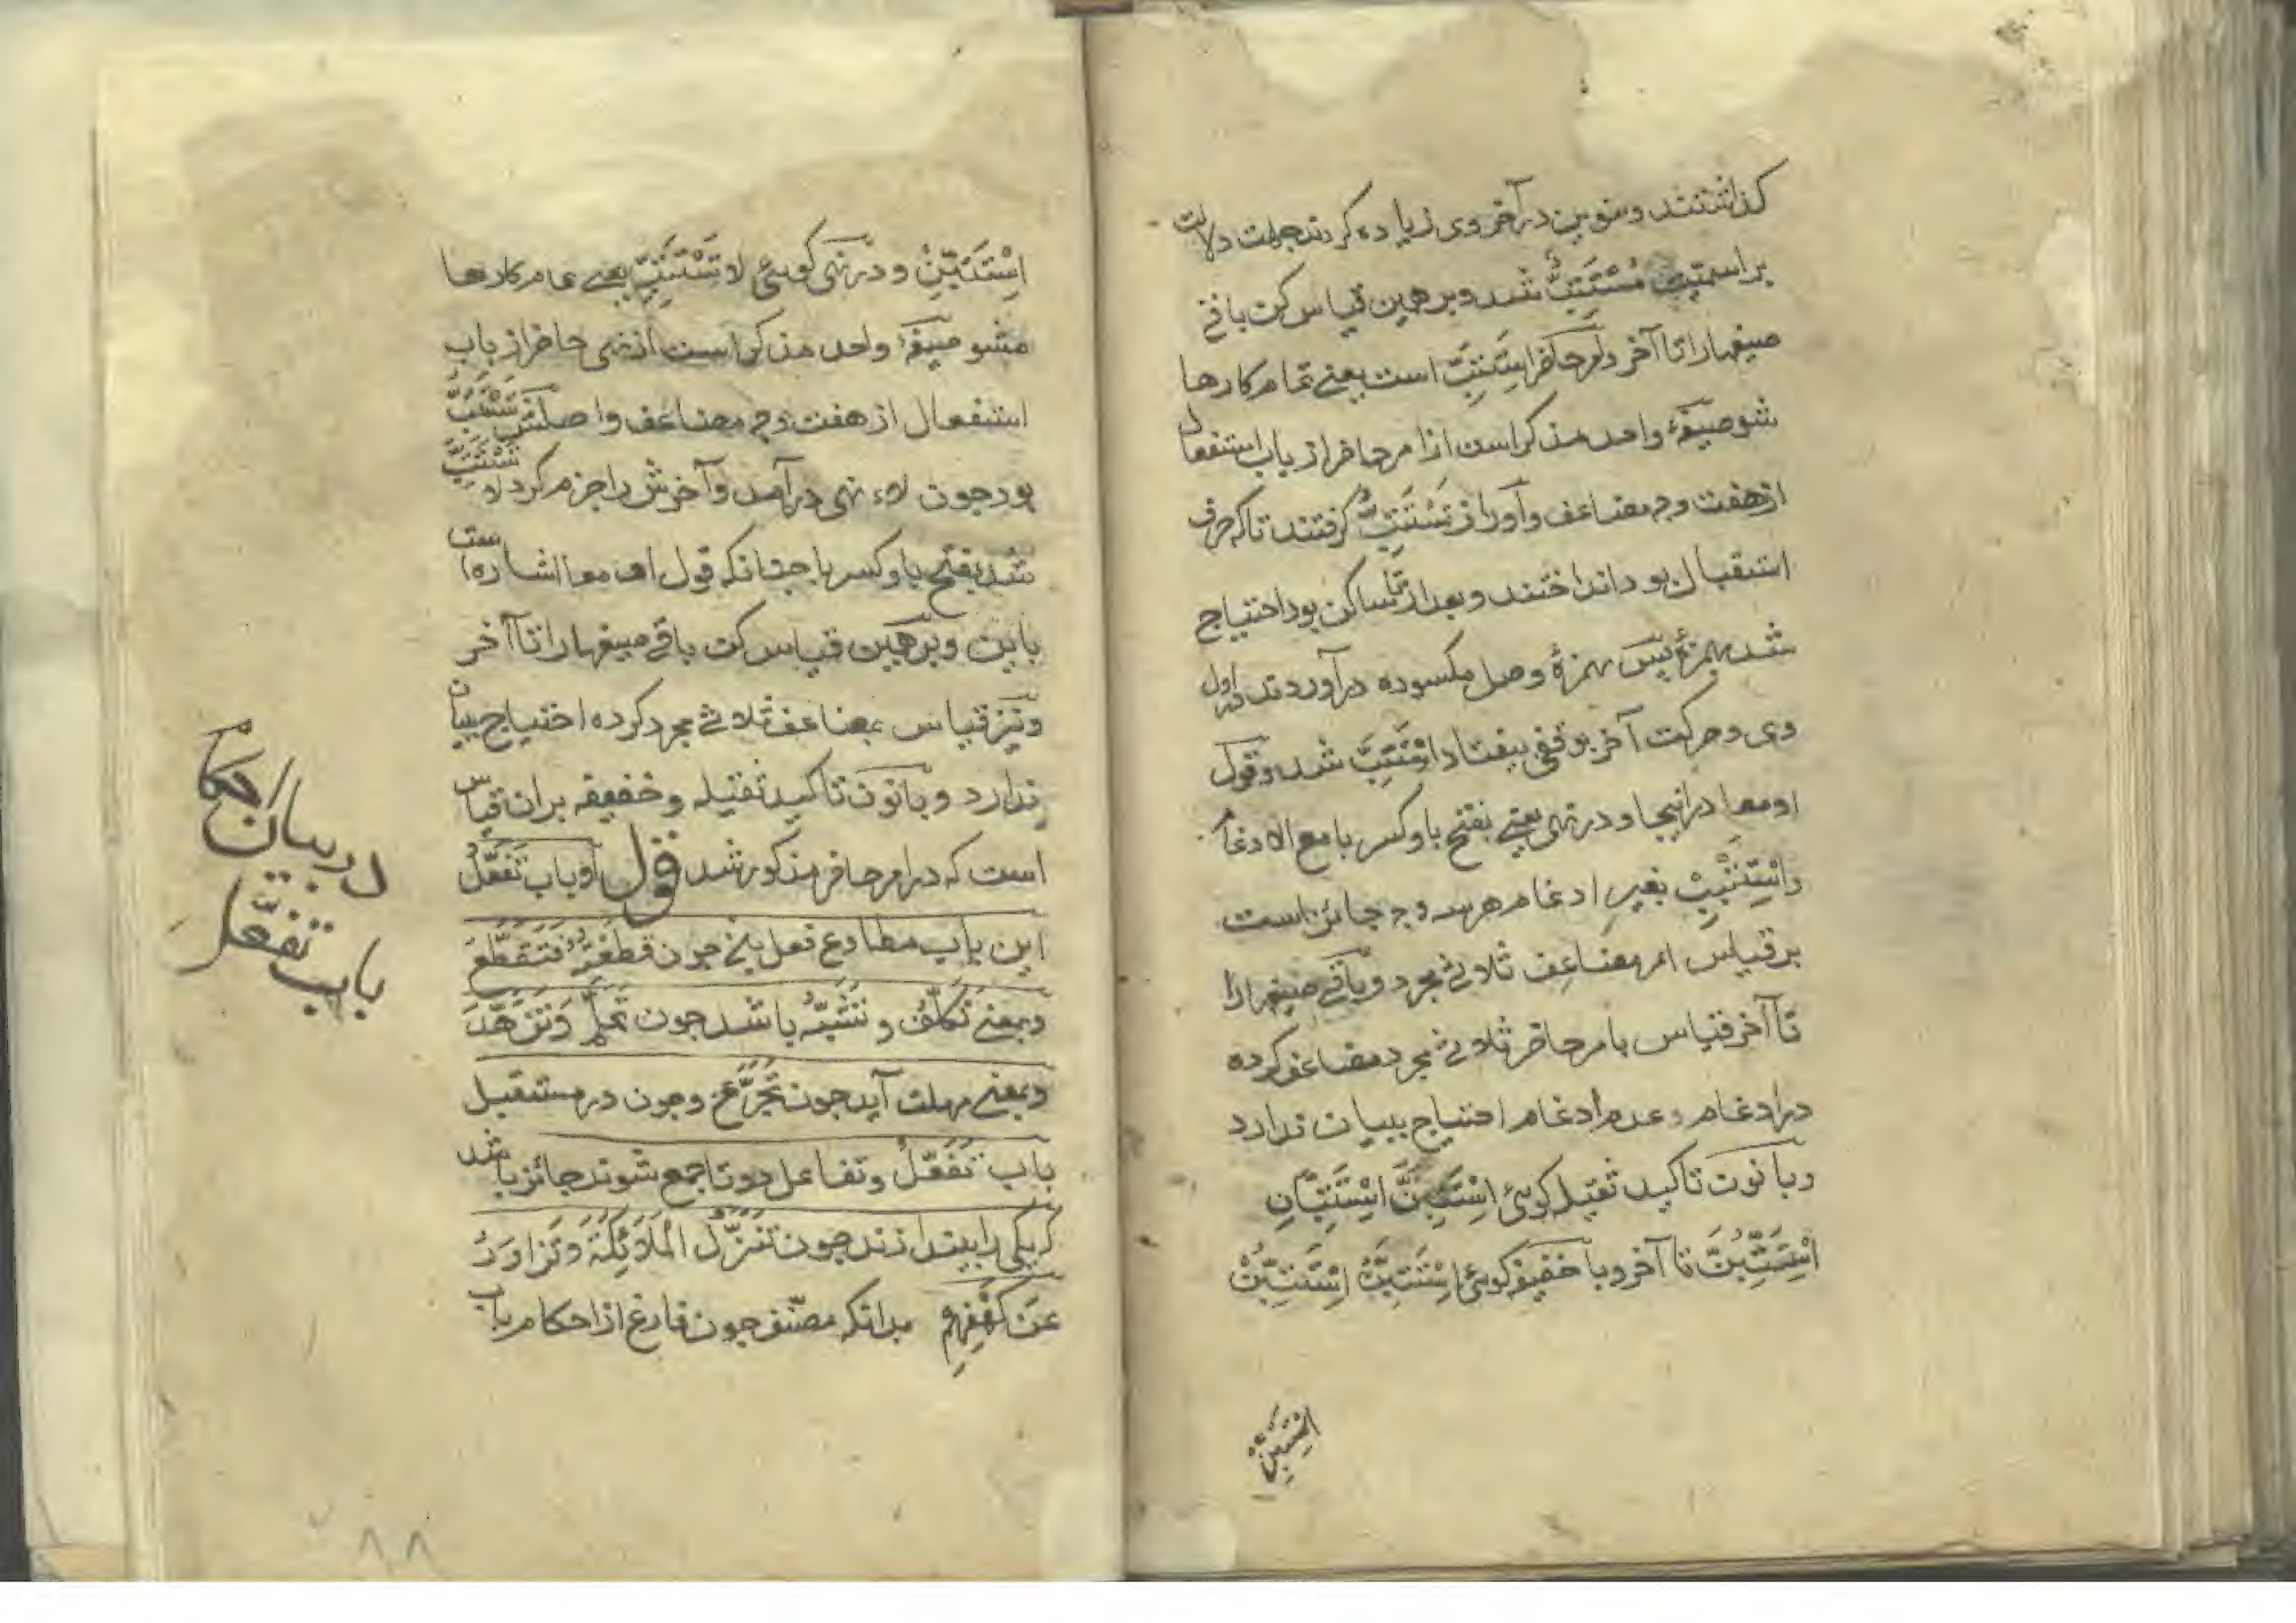 کذاشتند و تنوین در آخر وی زیاده کردند جهت دلالت
بر اسمیت مُسْتَتِبٌّ شد و بر همین قیاس کن باقی
صیغها را تا آخر و امر حاضر اِسْتَتِبَّ است یعنی تمام کارها
شو صیغهٔ واحد مذکر است از امر حاضر از باب استفعال
از هفت وجه مضاعف و آورا از تَسْتَتِبُّ کرفتند تا که حرف
استقبال بود انداختند و بعد از تا ساکن بود احتیاج
شد بهمزهٔ پس همزهٔ وصل مکسوره در آوردند در اول
وی و حرکت آخر بوقفی بیفتاد اِسْتَتِبَّ شد و قول
او معا در اینجا و در نهی یعنی بفتح با و کسر با مع الادغام
و اِسْتَتْبِبْ بغیر ادغام هر سه وجه جائز است
بر قیاس امر مضاعف ثلاثی مجرد و باقی صیغها را
تا آخر قیاس بامر حاضر ثلاثی مجرد مضاعف کرده
در ادغام و عدم ادغام احتیاج ببیان ندارد
و با نون تاکید ثقیله کوئی اِسْتَتِبَّنَّ اِسْتَتِبَّانِّ
اِسْتَتِبُّنَّ تا آخر و با خفیفه کوئی اِسْتَتِبَّنْ اِسْتَتِبُّنْ
اِسْتَتِبِّنْ
اِسْتَتِبِّنْ و در نهی کوئی لا تَسْتَتِبَّ یعنی تمام کارها
مشو صیغهٔ واحد مذکر است از نهی حاضر از باب
استفعال از هفت وجه مضاعف و اصلش تَسْتَتِبُّ
بود جون لاء نهی در آمد و آخرش را جزم کرد لا تَسْتَتِبَّ
شد بفتح با و کسر با جنانکه قول او معا اشاره است
باین و بر همین قیاس کن باقی صیغها را تا آخر
و نیز قیاس بمضاعف ثلاثی مجرد کرده احتیاج ببیان
ندارد و با نون تاکید ثقیله و خفیفه بران قیاس
است که در امر حاضر مذکور شد قوله او باب تَفَعُّلُ
این باب مطاوع فعل یخ جون قَطَّعْتُهُ فَتَقَطَّعَ
و بمعنی تَکَلُّفْ و تَشَبُّهْ باشد جون تَحَلَّمَ وَتَزَهَّدَ
و بمعنی مهلت آید جون تَجَرَّعَ و جون در مستقبل
باب تَفَعُّلْ و تفاعل دو تا جمع شوند جائز باشد
که یکی را بیندازند جون تَنَزَّلُ الْمَلَائِکَةُ وَتَزَاوَرُ
عَن کَهْفِهِمْ بدانکه مصنّف جون فارغ از احکام باب
در بیان احکام
باب تفعّل
۸۸